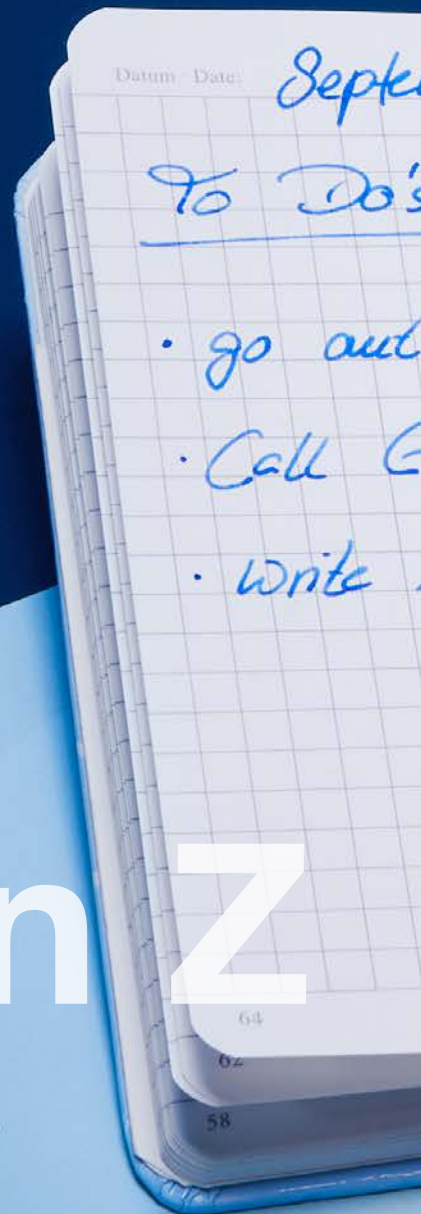 Datum · Date:
Septe
To Do's
· go out
· Call G
· Write
n Z
64
62
58